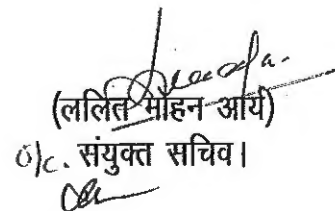 (ललित मोहन आर्य)
o/c. संयुक्त सचिव।